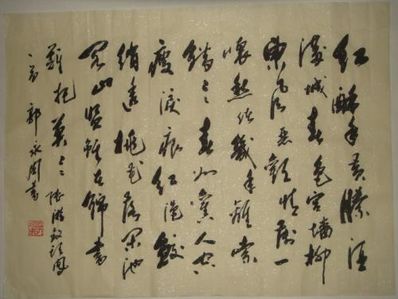 红酥手黄縢酒
满城春色宫墙柳
东风恶欢情薄一
怀愁绪几年离索
错々々春如旧人空
瘦泪痕红浥鲛
绡透桃花落闲池
阁山盟虽在锦书
难托莫々々陆游钗头凤
一首 郭永书